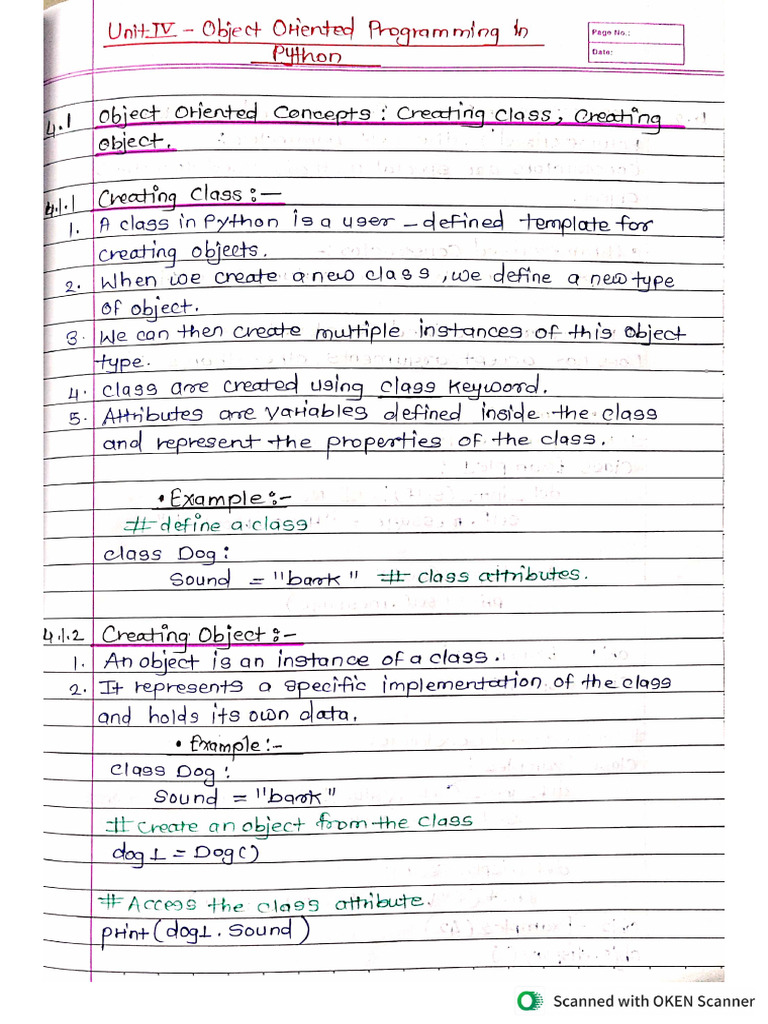 Unit-IV - Object Oriented Programming in
Python
Page No.:
Date:
4.1 Object Oriented Concepts : Creating Class, Creating
Object.
4.1.1 Creating Class :-
1. A class in Python is a user-defined template for
creating objects.
2. When we create a new class, we define a new type
of object.
3. We can then create multiple instances of this object
type.
4. Class are created using class keyword.
5. Attributes are variables defined inside the class
and represent the properties of the class.
• Example:-
# define a class
class Dog:
Sound = "bark" # class attributes.
4.1.2 Creating Object :-
1. An object is an instance of a class.
2. It represents a specific implementation of the class
and holds its own data.
• Example:-
class Dog:
Sound = "bark"
# Create an object from the class
dog1 = Dog()
# Access the class attribute.
print(dog1.Sound)
Scanned with OKEN Scanner